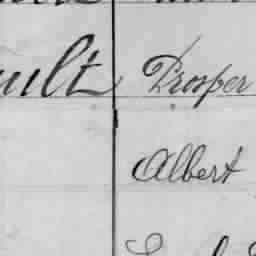 ult Prosper
Albert